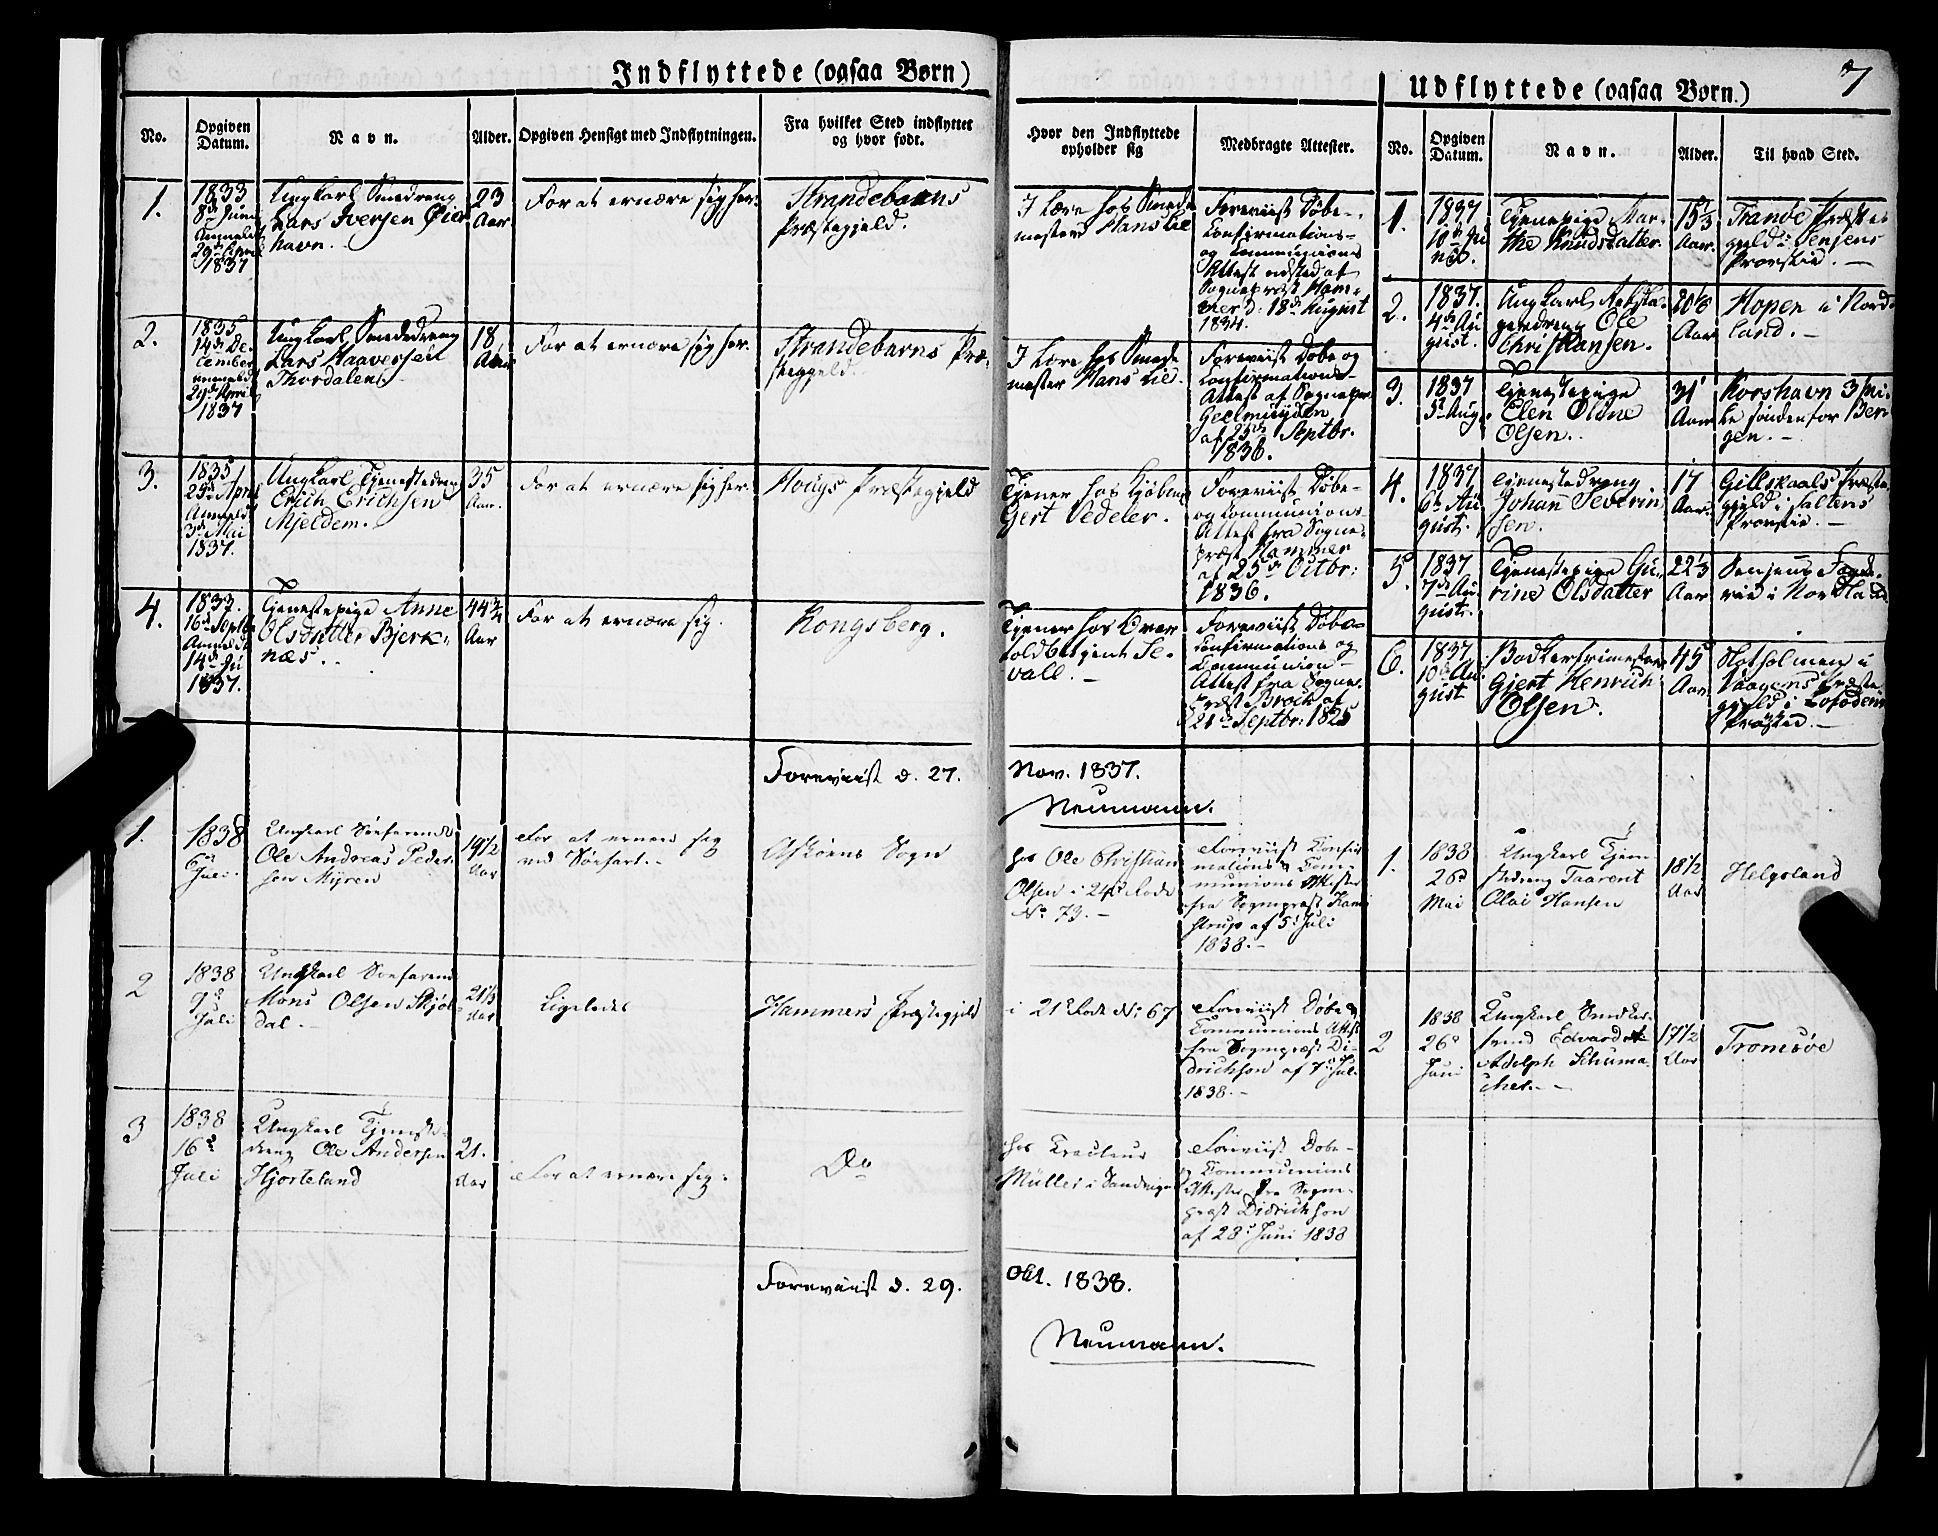 Indflyttede (ogsaa Børn)
No.
Opgiven
Datum.
Navn.
Alder.
Opgiven Hensigt med Indflytningen.
Fra hvilket Sted indflyttet
og hvor født.
Hvor den Indflyttede
opholder sig
Medbragte Attester.
1.
1833
8de Juni
Anmeldt
29de April
1837
Ungkarl Smedreng
Lars Iversen Øier
havn.
23
Aar
For at ernære sig her.
Strandebarns
Præstegjeld.
I Lære hos Smede
mester Hans Lie
Foreviist Døbe-,
Confirmations-
og Communions
Attest udsted af
Sognepræst Ham-
mer d. 18de August
1834.
2.
1835
14de De
cember
anmeldt
29de April
1837
Ungkarl Smededreng
Lars Haaversen
Thordalen
18
Aar
For at ernære sig her.
Strandebarns Præ-
stegjeld.
I Lære hos Smede
mester Hans Lie.
Foreviist Døbe og
Confirmations
Attest af Sognepr.
Geelmuyden
af 25de Septbr.
1836.
3.
1835
29de April
Anmeldt
3de Mai
1837.
Ungkarl Tjenestedreng
Erich Erichsen
Mjeldem.
35
Aar.
For at ernære sig her.
Hougs Præstegjeld
Tjener hos Kjøbm.
Gert Vedeler.
Foreviist Døbe-
og Communions-
Attest fra Sogne-
præst Hammer
af 25de Octbr:
1836.
4.
1833.
16de Septbr
Anmeldt
14de Ju
1837.
Tjenestepige Anne
Olsdatter Bjerk-
næs.
44½
Aar
For at ernære sig.
Kongsberg.
Tjener hos Over
toldbetjent Se-
vall.
Foreviist Døbe-
Confirmations og
Communion-
Attest fra Sogne-
præst Brock af
21de Septbr: 1825
Foreviist d. 27. Nov. 1837.
Neumann.
1.
1838
6de
Juli.
Ungkarl Søefarende
Ole Andreas Peder-
sen Myren
19½
Aar
For at ernære sig
ved Søefart.
Askøens Sogn
hos Ole Christian
Olsen i 24de Rode
No 73.
Foreviist Confir
mations & Com-
munions Attester
fra Sognepræst Kam
strup af 5t Juli
1838.
2
1838
7de
Juli
Ungkarl Søefarende
Mons Olsen Skjol
dal.
21⅓
Aar
Ligeledes
Hammers Præstegjeld
i 21de Rode No 67
Foreviist Døbe &
Communions Attest
fra Sognepræst Di-
drichson af 7t Juli
1838.
3
1838
16de
Juli
Ungkarl Tjeneste-
dreng Ole Andersen
Hjorteland
21.
Aar
For at ernære sig.
Do
hos Traiteur
Müller i Sandvigen
Foreviist Døbe-
& Communions
Attester fra Sogne-
præst Didrichson
af 28t Juni 1838
Foreviist d. 29. Okt. 1838.
Neumann.
7
Udflyttede (ogsaa Børn.)
No.
Opgiven
Datum.
Navn.
Alder.
Til hvad Sted.
1.
1837
10de Ju
ni.
Tjenestepige Mar-
the Knudsdatter.
15⅓
Aar.
Tranøe Præste
gjeld i Senjens
Provstie.
2.
1837.
4de Au
gust.
Ungkarl
Ole
Christiansen.
20⅙
Aar
Hopen i Nord-
land.
3.
1837
5te Aug.
Tjenestepige
Elen Oline
Olsen.
31
Aar
Korshavn 3 Mi-
le søndenfor Ber
gen.
4.
1837
6te Au
gust.
Tjenestedreng
Johan Severin
sen.
17
Aar.
Gilleskaals Præste
gjeld i Saltens
Provstie.
5.
1837
7de Au
gust.
Tjenestepige Gu-
rine Olsdatter
22⅓
Aar
Senjens Fogde-
rie i Nordland
6.
1837.
10de Au
gust
Bødkerfrimester
Gjert Henrich
Olsen.
45
Aar
Hotholmen i
Vaagens Præste
gjeld i Lofodens
Provstie.
1.
1838
26de
Mai
Ungkarl Tjene-
stedreng Taarent
Olai Hansen
18½
Aar
Helgeland
2
1838
26de
Juni
Ungkarl Snedker-
svend Edvard
Adolph Schuma-
cher.
17½
Aar
Tromsøe